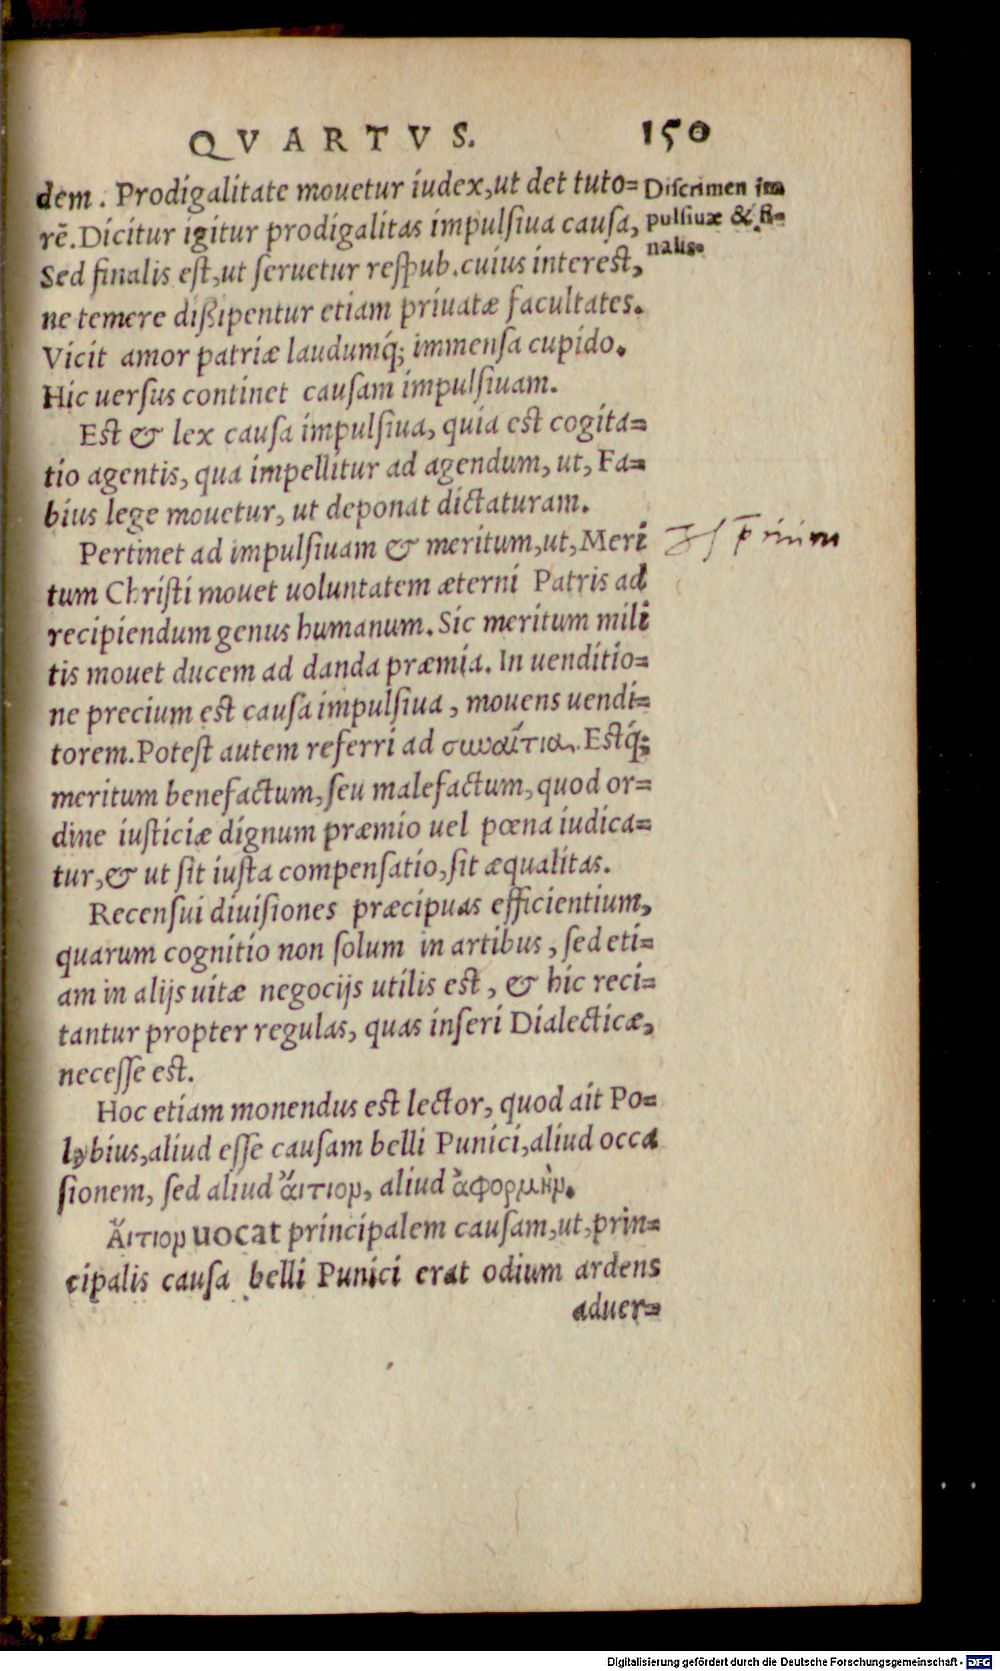 QVARTVS. 150
dem. Prodigalitate mouetur iudex, ut det tuto=
rē. Dicitur igitur prodigalitas impulſiua cauſa,
Sed finalis eſt, ut ſeruetur reſpub. cuius intereſt,
ne temere dißipentur etiam priuatæ facultates.
Vicit amor patriæ laudumq́; immenſa cupido.
Hic uerſus continet cauſam impulſiuam.
Eſt & lex cauſa impulſiua, quia eſt cogita=
tio agentis, qua impellitur ad agendum, ut, Fa=
bius lege mouetur, ut deponat dictaturam.
Pertinet ad impulſiuam & meritum, ut, Meri
tum Chriſti mouet uoluntatem æterni Patris ad
recipiendum genus humanum. Sic meritum mili
tis mouet ducem ad danda præmia. In uenditio=
ne precium eſt cauſa impulſiua, mouens uendi=
torem. Poteſt autem referri ad συναίτια. Eſtq́;
meritum benefactum, ſeu malefactum, quod or=
dine iuſticiæ dignum præmio uel pœna iudica=
tur, & ut ſit iuſta compenſatio, ſit æqualitas.
Recenſui diuiſiones præcipuas efficientium,
quarum cognitio non ſolum in artibus, ſed eti=
am in alijs uitæ negocijs utilis eſt, & hic reci=
tantur propter regulas, quas inſeri Dialecticæ,
neceſſe eſt.
Hoc etiam monendus eſt lector, quod ait Po=
lybius, aliud eſſe cauſam belli Punici, aliud occa
ſionem, ſed aliud ἄιτιον, aliud ἀφορμὴν.
Ἄιτιον uocat principalem cauſam, ut, prin=
cipalis cauſa belli Punici erat odium ardens
aduer=
Diſcrimen im
pulſiuæ & fi=
nalis.
Digitalisierung gefördert durch die Deutsche Forschungsgemeinschaft - DFG